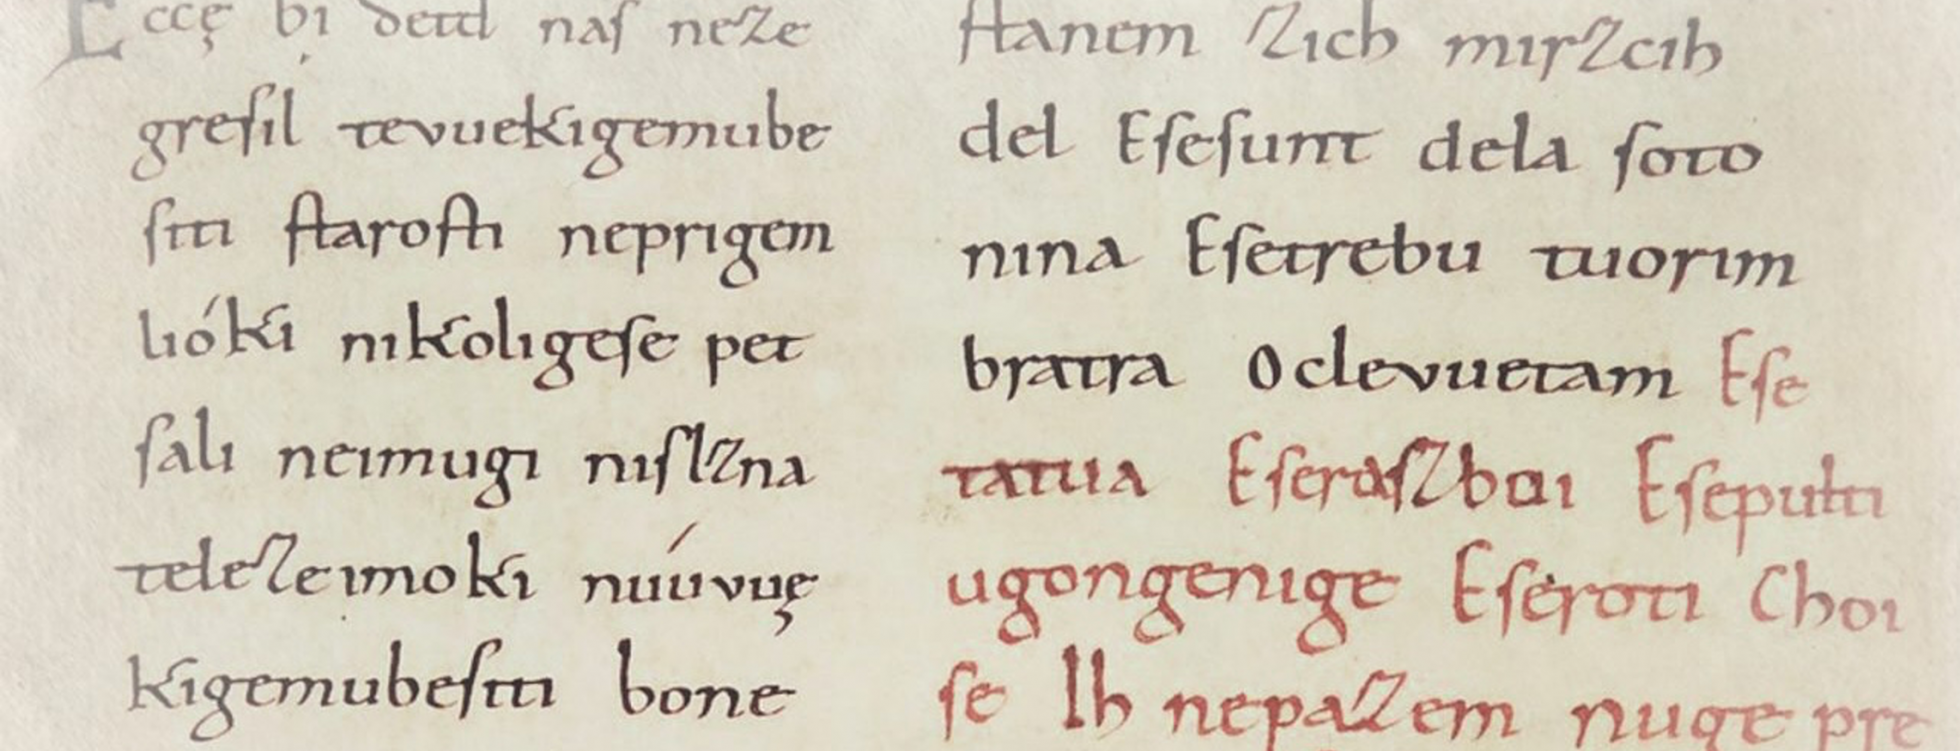 Eccę bi detd naſ neZe
greſil tevuekigemube
ſiti ſtaroſti neprigem
lióki nikoligeſe pet
ſali neimugi niſlZna
teleZeimoki nuúvuę
kigemubeſiti bone
ſtanem Zich mirZcih
del Eſeſunt dela ſoto
nina Eſetrebu tuorim
bratra Oclevuetam Eſe
tatua EſeraſZboi Eſepulti
ugongenige Eſeroti Choi
ſe Ih nepaZem nuge pre